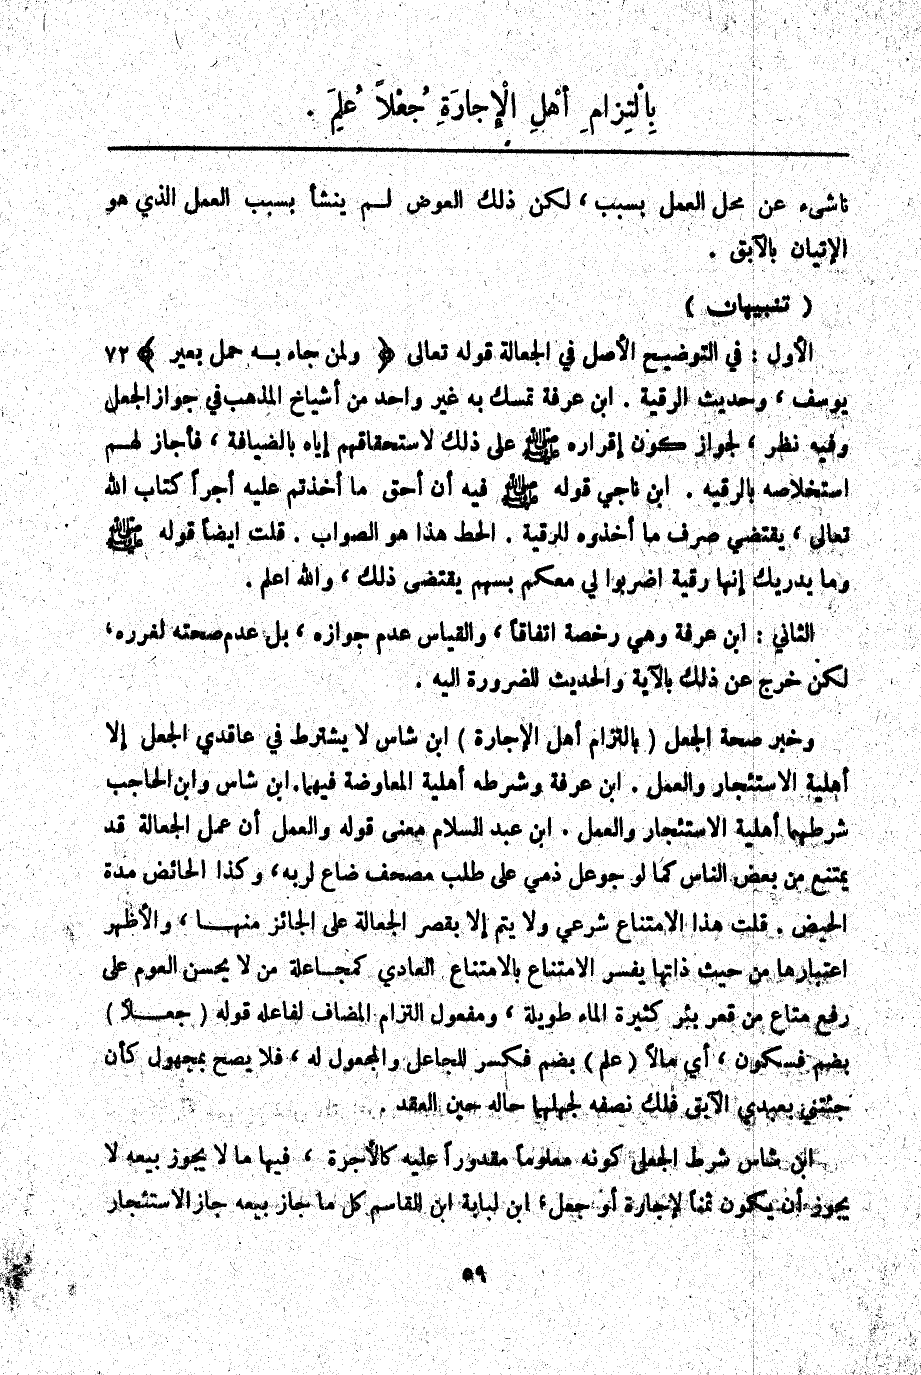 بِالْتِزامِ أَهْلِ الْإِجارَةِ جُعْلاً عُلِمَ .
ناشىء عن محل العمل بسبب ، لكن ذلك العوض لـم ينشأ بسبب العمل الذي هو
الإتيان بالآبق .
( تنبيهان )
الأول : في التوضيح الأصل في الجعالة قوله تعالى ﴿ ولمن جاء بـه حمل بعير ﴾ ٧٢
يوسف ، وحديث الرقية . ابن عرفة تمسك به غير واحد من أشياخ المذهب في جواز الجعل
وفيه نظر ، لجواز كون إقراره ﷺ على ذلك لاستحقاقهم إياه بالضيافة ، فأجاز لهـم
استخلاصه بالرقيه . ابن ناجي قوله ﷺ فيه أن أحق ما أخذتم عليه أجراً كتاب الله
تعالى ، يقتضي صرف ما أخذوه للرقية . الحط هذا هو الصواب . قلت ايضاً قوله ﷺ
وما يدريك إنها رقية اضربوا لي معكم بسهم يقتضى ذلك ، والله اعلم .
الثاني : ابن عرفة وهي رخصة اتفاقاً ، والقياس عدم جوازه ، بل عدم صحته لغرره ،
لكن خرج عن ذلك بالآية والحديث للضرورة اليه .
وخبر صحة الجعل ( بالتزام أهل الإجارة ) ابن شاس لا يشترط في عاقدي الجعل إلا
أهلية الاستئجار والعمل . ابن عرفة وشرطه أهلية المعاوضة فيهما . ابن شاس وابن الحاجب
شرطهما أهلية الاستئجار والعمل . ابن عبد السلام معنى قوله والعمل أن عمل الجعالة قد
يمتنع من بعض الناس كما لو جوعل ذمي على طلب مصحف ضاع لربه ، وكذا الحائض مدة
الحيض . قلت هذا الامتناع شرعي ولا يتم إلا بقصر الجعالة على الجائز منهـــا ، والأظهر
اعتبارها من حيث ذاتها يفسر الامتناع بالامتناع العادي كمجـاعلة من لا يحسن العوم على
رفع متاع من قعر بئر كثيرة الماء طويلة ، ومفعول التزام المضاف لفاعله قوله ( جعــلاً )
بضم فسكون ، أي مالاً ( علم ) بضم فكسر للجاعل والمجعول له ، فلا يصح بمجهول كأن
جئتني بعبدي الآبق فلك نصفه لجهلهما حاله حين العقد .
ابن شاس شرط الجعل كونه معلوماً مقدوراً عليه كالأجرة ، فيها ما لا يجوز بيعه لا
يجوز أن يكون ثمناً لإجارة أو جعل ، ابن لبابة ابن القاسم كل ما جاز بيعه جاز الاستئجار
٥٩